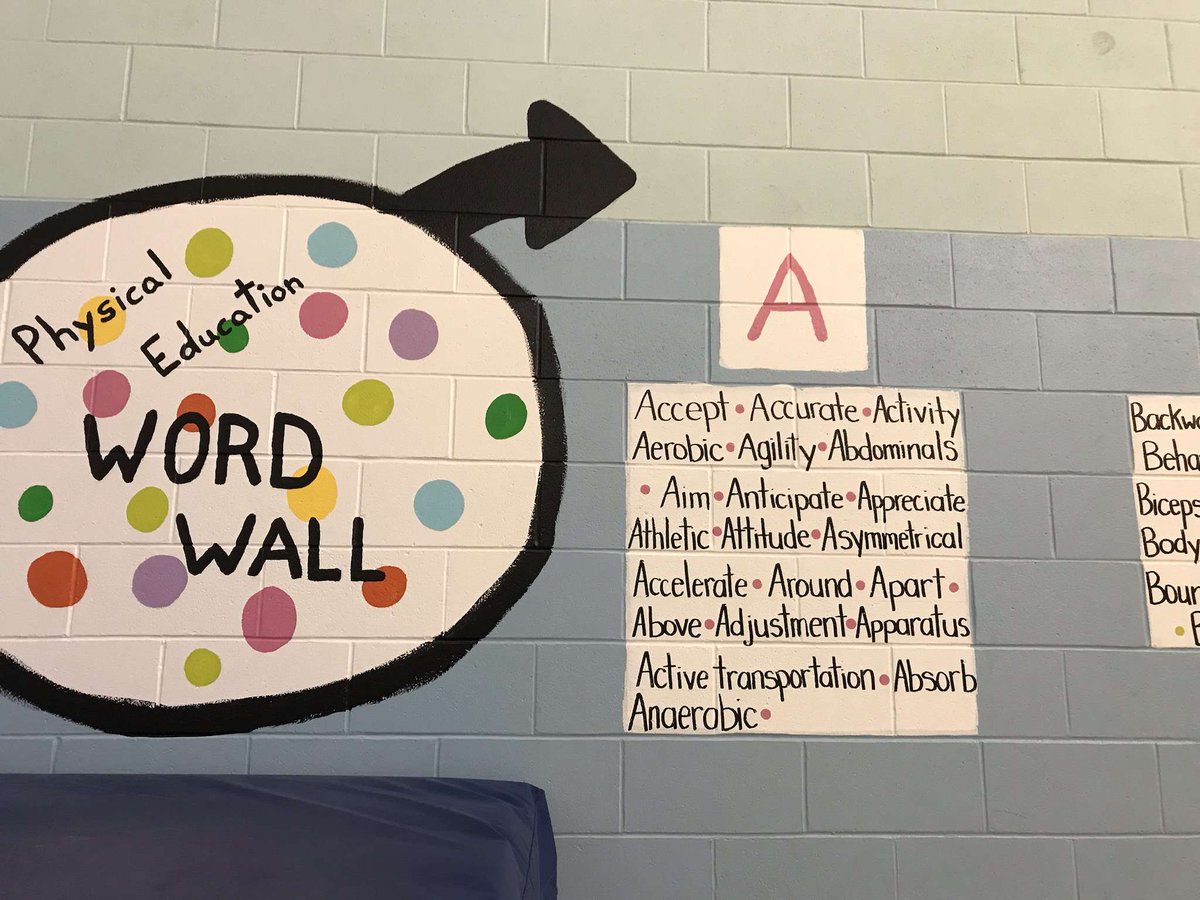 Physical
Education
WORD
WALL
A
Accept • Accurate • Activity
Aerobic • Agility • Abdominals
• Aim • Anticipate • Appreciate
Athletic • Attitude • Asymmetrical
Accelerate • Around • Apart •
Above • Adjustment • Apparatus
Active transportation • Absorb
Anaerobic •
Biceps
Body